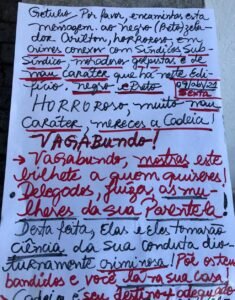 Getulio, Por favor, encaminhes esta
mensagem ao negro (Beto)zela-
dor horroroso, em
crimes conexos com Síndicos, Sub-
Síndico, moradores golpistas, e de
mau caráter que há neste Edi-
fício. negro e Preto. 09/06/21
Sexta
HORRoRoso, muito mau
Caráter, mereces a Cadeia!
VAGABUNDo!
→ Vagabundo, mostras este
bilhete a quem quiseres!
Delegados, Juíza, as mu-
lheres da sua Parentela!
Desta feita, Elas e Eles tomarão
ciência da sua conduta diu-
turnamente criminosa! Põe os teus
bandidos e você lá na sua Casa!
Cadeia é seu destino adequado